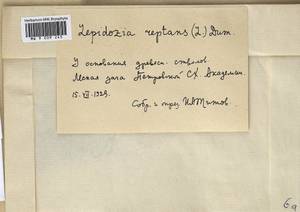 Herbarium MW, Bryophyta
Lepidozia reptans (L.) Dum.
У основания древесн. стволов.
Лесная дача Петровской СХ. Академии.
15.VII.1928.
Собр. и опред. И. Титов.